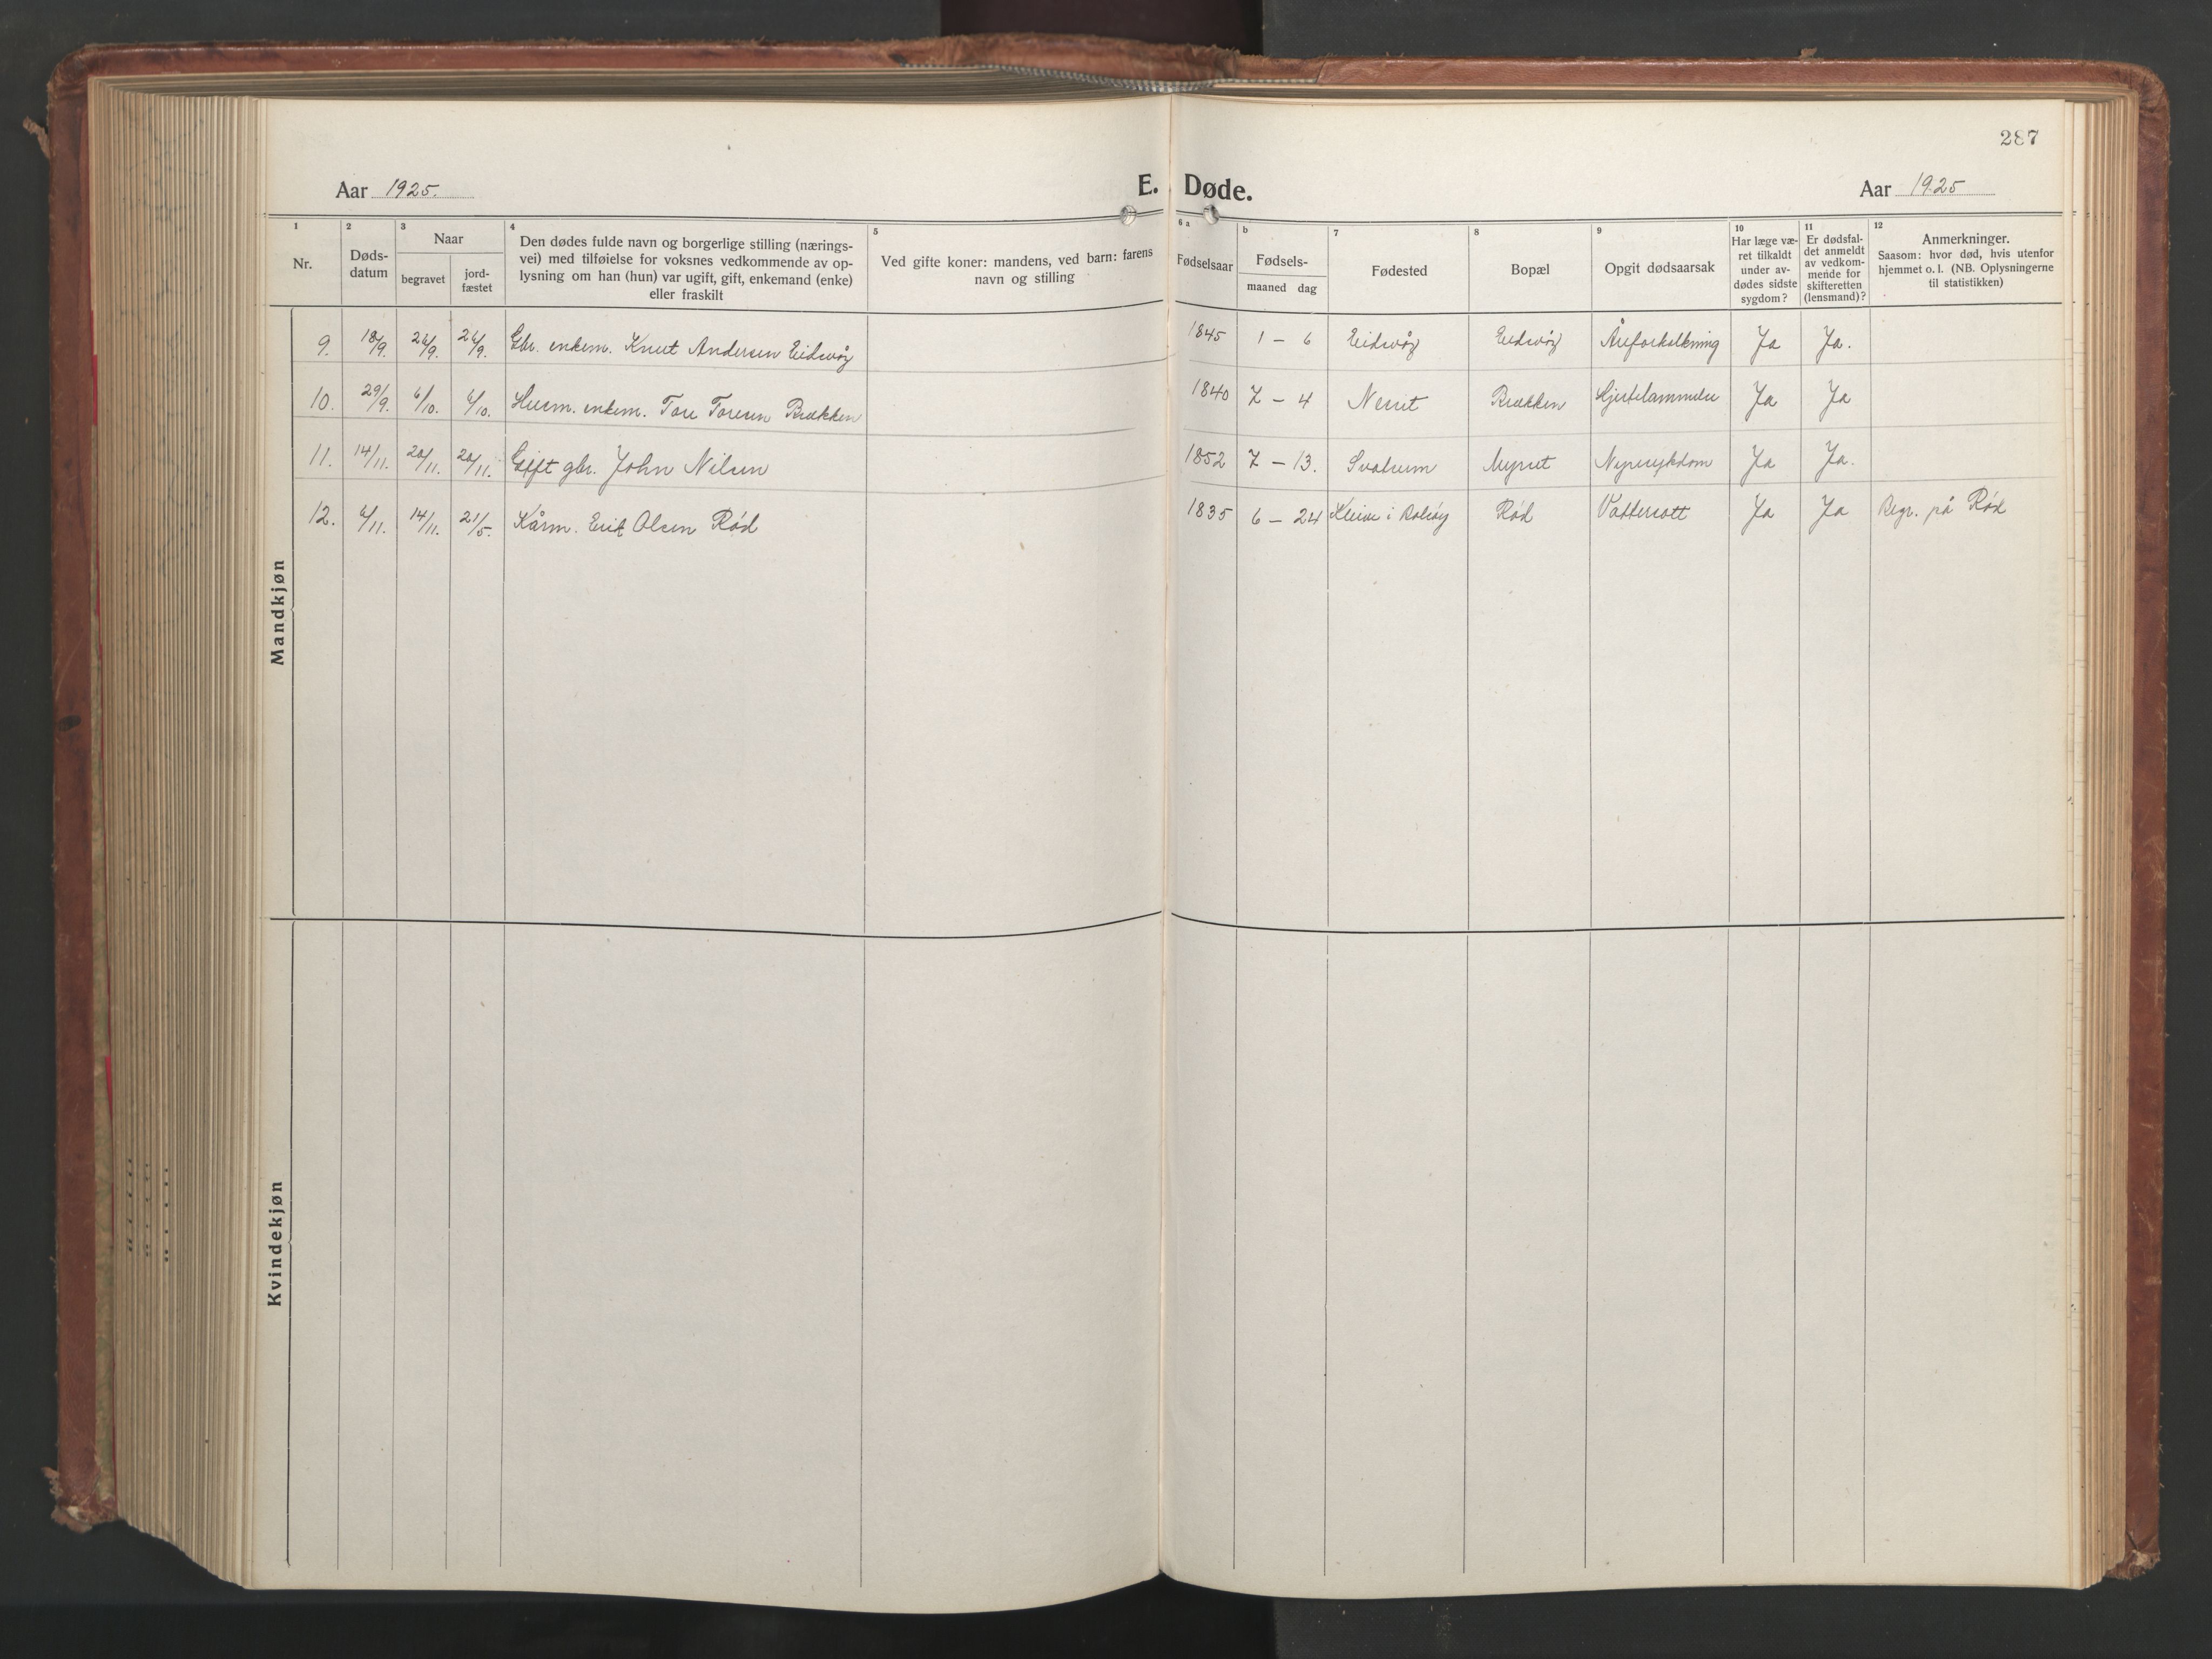 287
Aar 1925.
E. Døde.
Aar 1925
1
Nr.
2
Døds-
datum
3
Naar
begravet
jord-
fæstet
4
Den dødes fulde navn og borgerlige stilling (nærings-
vei) med tilføielse for voksnes vedkommende av op-
lysning om han (hun) var ugift, gift, enkemand (enke)
eller fraskilt
5
Ved gifte koner: mandens, ved barn: farens
navn og stilling
6 a
Fødselsaar
b
Fødsels-
maaned dag
7
Fødested
8
Bopæl
9
Opgit dødsaarsak
10
Har læge væ-
ret tilkaldt
under av-
dødes sidste
sygdom?
11
Er dødsfal-
det anmeldt
av vedkom-
mende for
skifteretten
(lensmand)?
12
Anmerkninger.
Saasom: hvor død, hvis utenfor
hjemmet o. l. (NB. Oplysningerne
til statistikken)
Mandkjøn
9. 18/9. 26/9. 26/9. Gbr. enkem. Knut Andersen Eidsvåg 1845 1 - 6 Eidsvåg Eidsvåg Åreforkalkning Ja Ja.
10. 29/9. 6/10. 6/10. Husm. enkem. Tore Toresen Brækken 1840 7 - 4 Nesset Brækken Hjertelammelse Ja Ja
11. 14/11. 20/11. 20/11. Gift gbr. John Nilsen 1852 7 - 13. Myrset Nyresykdom Ja Ja.
12. 6/11. 14/11. 21/5. Kårm. Erik Olsen Rød 1835 6 - 24 Kleive i Bolsøy Rød Vattersott Ja Ja Begr. på Rød
Kvindekjøn